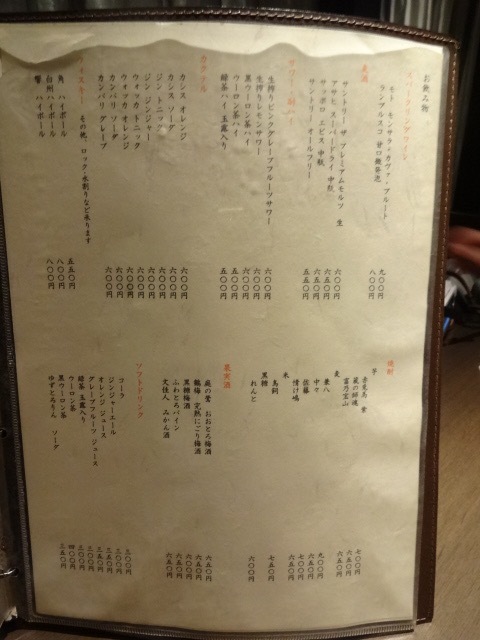 お飲み物
スパークリングワイン
モンサラ・カヴァ・ブルート 九〇〇円
ランブルスコ 甘口微発泡 八〇〇円
麦酒
サントリー ザ プレミアムモルツ 生 六〇〇円
アサヒ スーパードライ 中瓶 六五〇円
サッポロ ヱビス 中瓶 六五〇円
サントリー オールフリー 五五〇円
サワー・酎ハイ
生搾りピンクグレープフルーツサワー 六〇〇円
生搾りレモンサワー 六〇〇円
黒ウーロン茶ハイ 六〇〇円
ウーロン茶ハイ 五〇〇円
緑茶ハイ 玉露入り 五〇〇円
カクテル
カシス オレンジ 六〇〇円
カシス ソーダ 六〇〇円
ジン トニック 六〇〇円
ジン ジンジャー 六〇〇円
ウォッカ トニック 六〇〇円
ウォッカ オレンジ 六〇〇円
カンパリ ソーダ 六〇〇円
カンパリ グレープ 六〇〇円
ウィスキー
その他、ロック・水割りなど承ります
角 ハイボール 五五〇円
白州 ハイボール 八〇〇円
響 ハイボール 八〇〇円
焼酎
芋
赤兎馬 紫 七〇〇円
蔵の師魂 六五〇円
富乃宝山 六五〇円
麦
兼八 九〇〇円
中々 六五〇円
佐藤 七〇〇円
情け嶋 六五〇円
米
鳥飼 七五〇円
黒糖
れんと 六〇〇円
果実酒
庭の鶯 おおとろ梅酒 六五〇円
鶴梅 完熟にごり梅酒 六五〇円
黒糖梅酒 六〇〇円
ふわとろパイン 六五〇円
大佳人 みかん酒 六五〇円
ソフトドリンク
コーラ 三〇〇円
ジンジャーエール 三〇〇円
オレンジ ジュース 三五〇円
グレープフルーツ ジュース 三五〇円
緑茶 玉露入り 三〇〇円
ウーロン茶 三〇〇円
黒ウーロン茶 四〇〇円
ゆずとろりん ソーダ 三五〇円